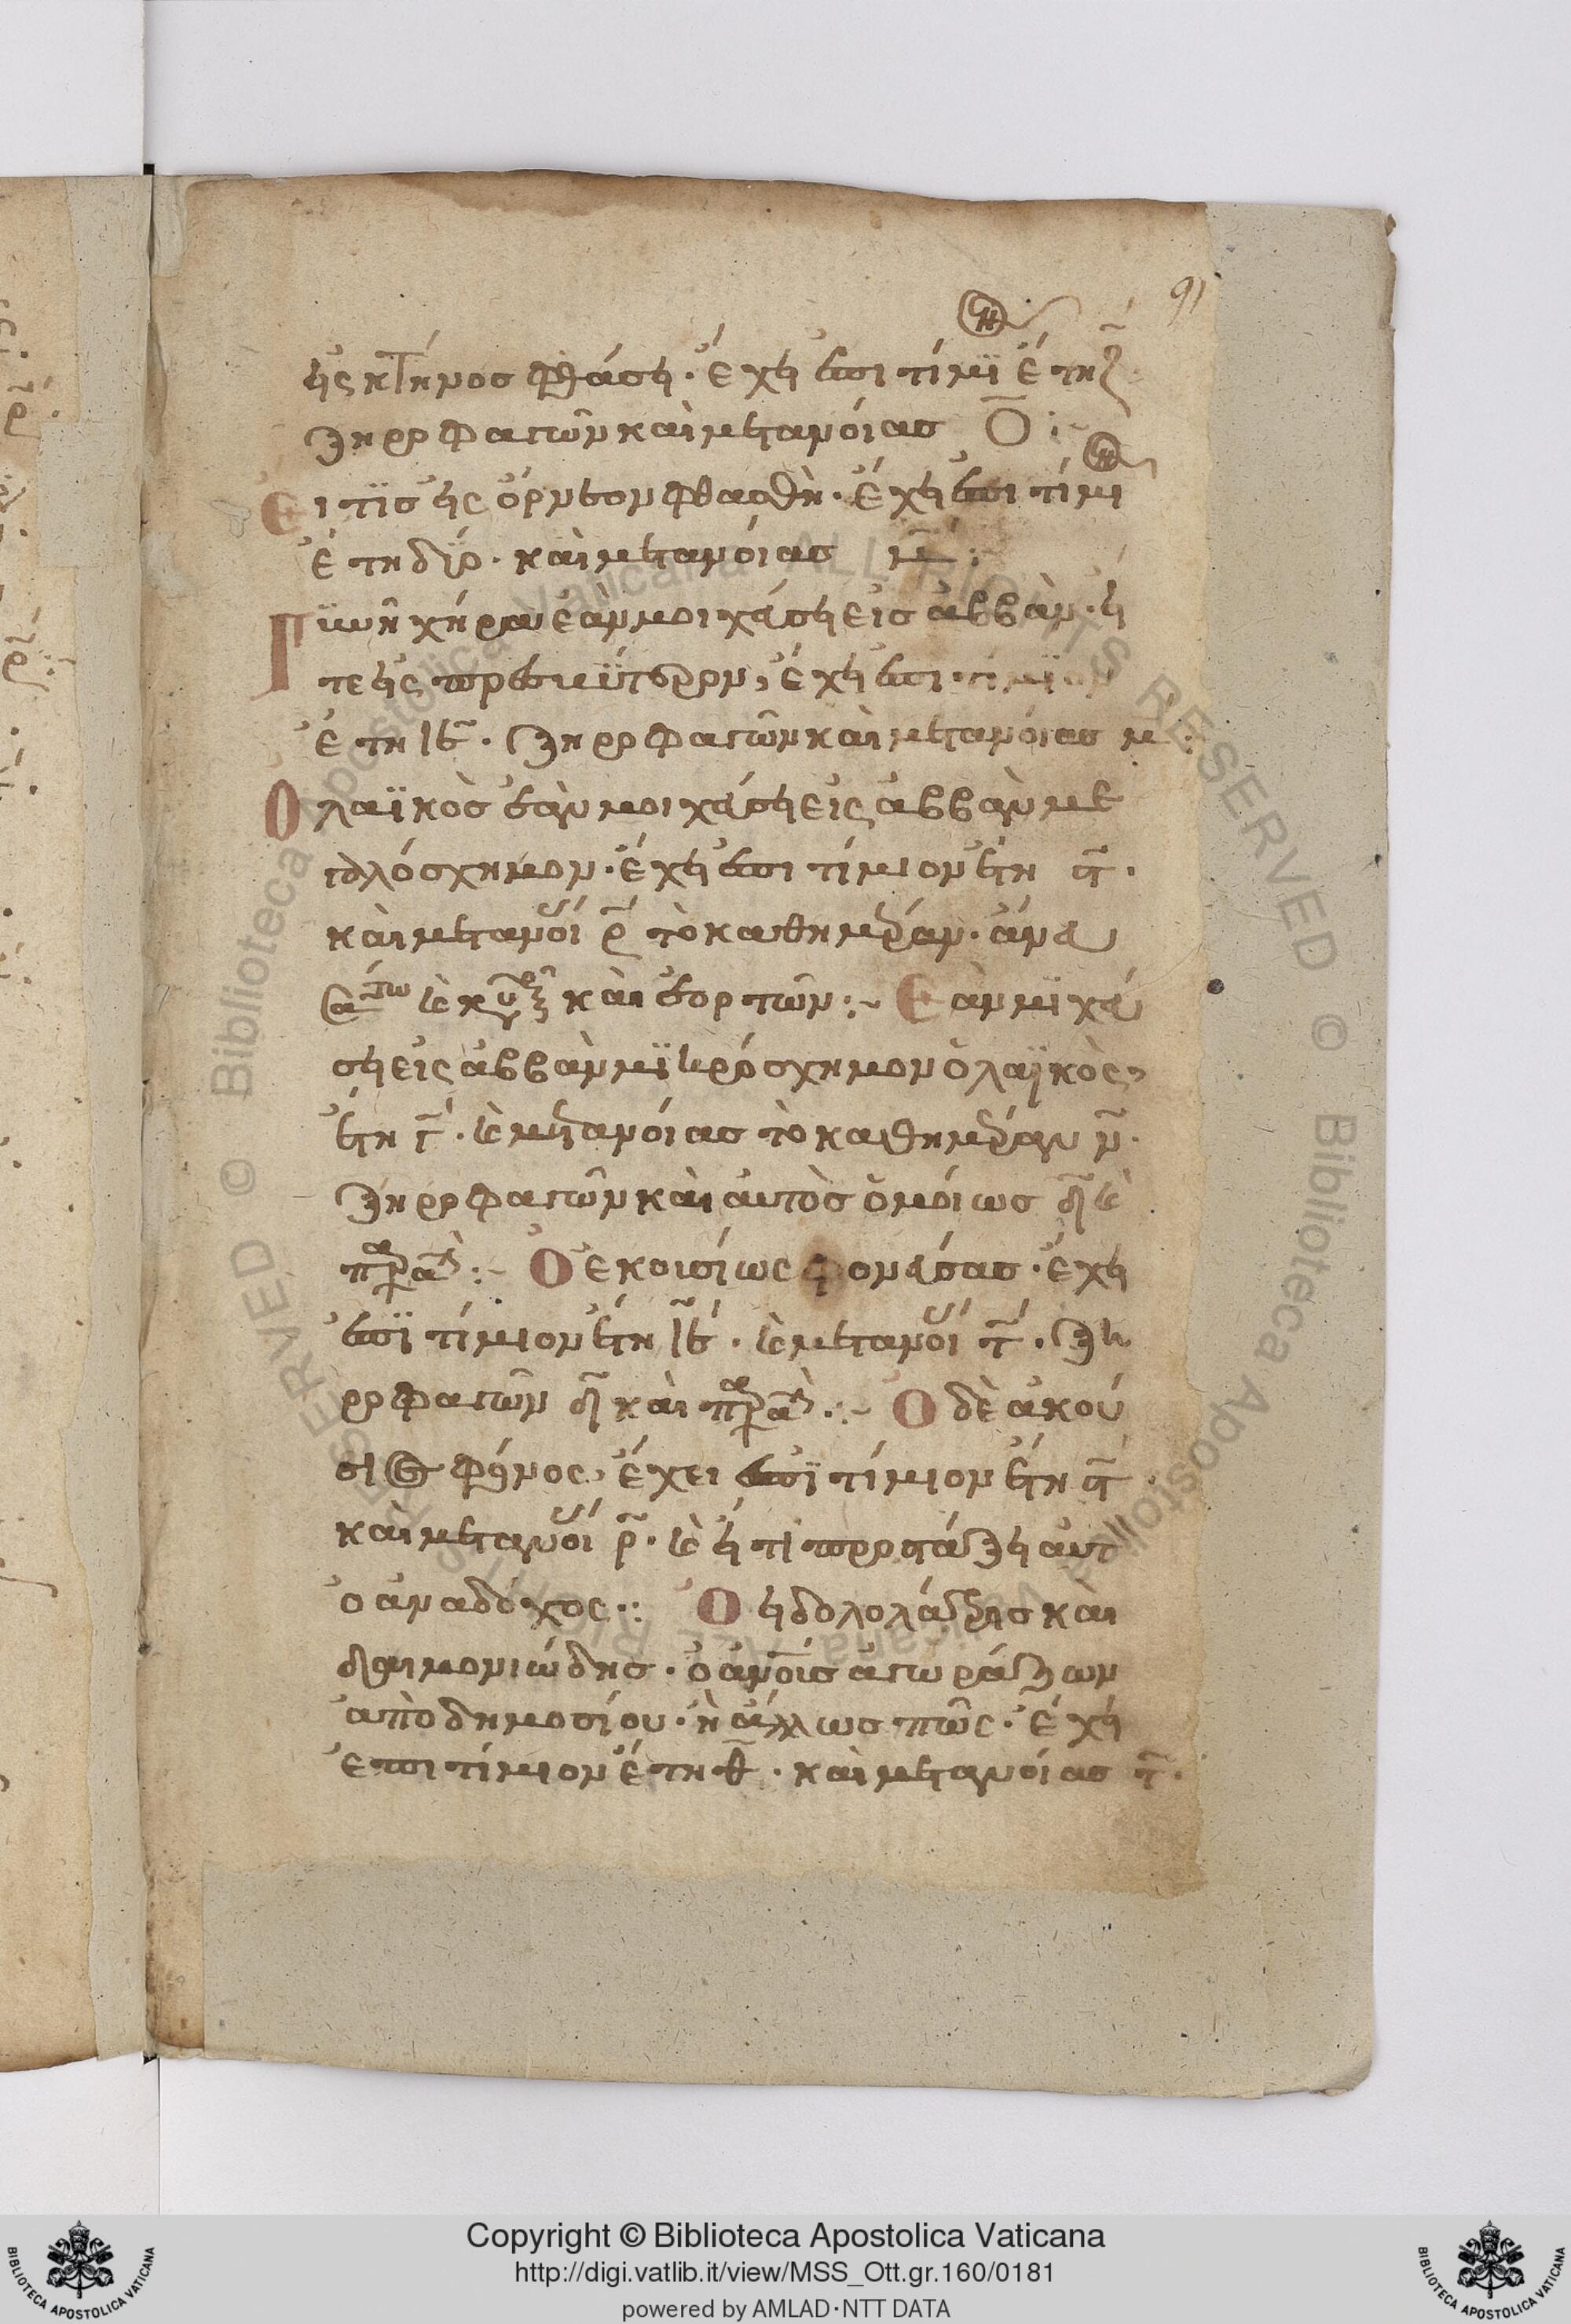 91
ἠς κτῆνος φθάση· ἔχη ἐπιτίμϊ ἔτη ζ
ξηροφαγῶν καὶ μετανοίας ο̅ :~
Εἰ τϊς ἠς ὄρνεον φθασθῆ· ἔχη ἐπιτίμι
ἔτη δύο· καὶ μετανοίας μ̅ :
Γϋνὴ χήρα ἐὰν μοιχάση εἰς ἀββὰν· ἠ
τε ἠς πρεσβΰτερον, ἔχη ἐπιτίμϊον
ἔτη ιβ̅· ξηροφαγῶν καὶ μετανοίας μ̅ :
Ο λαϊκὸς ἐὰν μοιχάση εἰς ἀββὰν με
γαλόσχημον· ἔχη ἐπιτίμιον ἔτη
καὶ μετανοί ρ̅ τὸ καθημέραν· ἄνευ
καὶ ἑορτῶν :~ Εὰν μϊχά
ση εἰς ἀββὰν μϊκρόσχημον ὁ λαϊκὸς,
ἔτη γ̅· κ μετανοίας τὸ καθημέραν ν̅·
ξηροφαγῶν καὶ αὐτὸς ὁμοίως δ̅ κ
π̅α̅ρ̅α̅ :~ Ο ἐκουσίως φονεύσας· ἔχη
ἐπϊτίμιον ἔτη ιβ̅· κ μετανοί τ̅· ξη
ροφαγῶν δ̅ καὶ π̅α̅ρ̅α̅ :~ Ο δὲ ἀκού
σιος φόνος, ἔχει ἐπϊτίμιον ἔτη
καὶ μετανοί ρ̅· κ ἤ τι προστάξη αὐτ
ὁ ἀναδόχος :· Ο ἠδολολάτρης καὶ
δαιμονιώδης· ὁ ἀνοῖς ἀγωράζων
ἀπὸ δημοσίου· ἢ ἄλλως πῶς· ἔχη
ἐπιτίμιον ἔτη θ̅· καὶ μετανοίας τ̅·
Copyright © Biblioteca Apostolica Vaticana
http://digi.vatlib.it/view/MSS_Ott.gr.160/0181
powered by AMLAD·NTT DATA
BIBLIOTECA APOSTOLICA VATICANA
BIBLIOTECA APOSTOLICA VATICANA